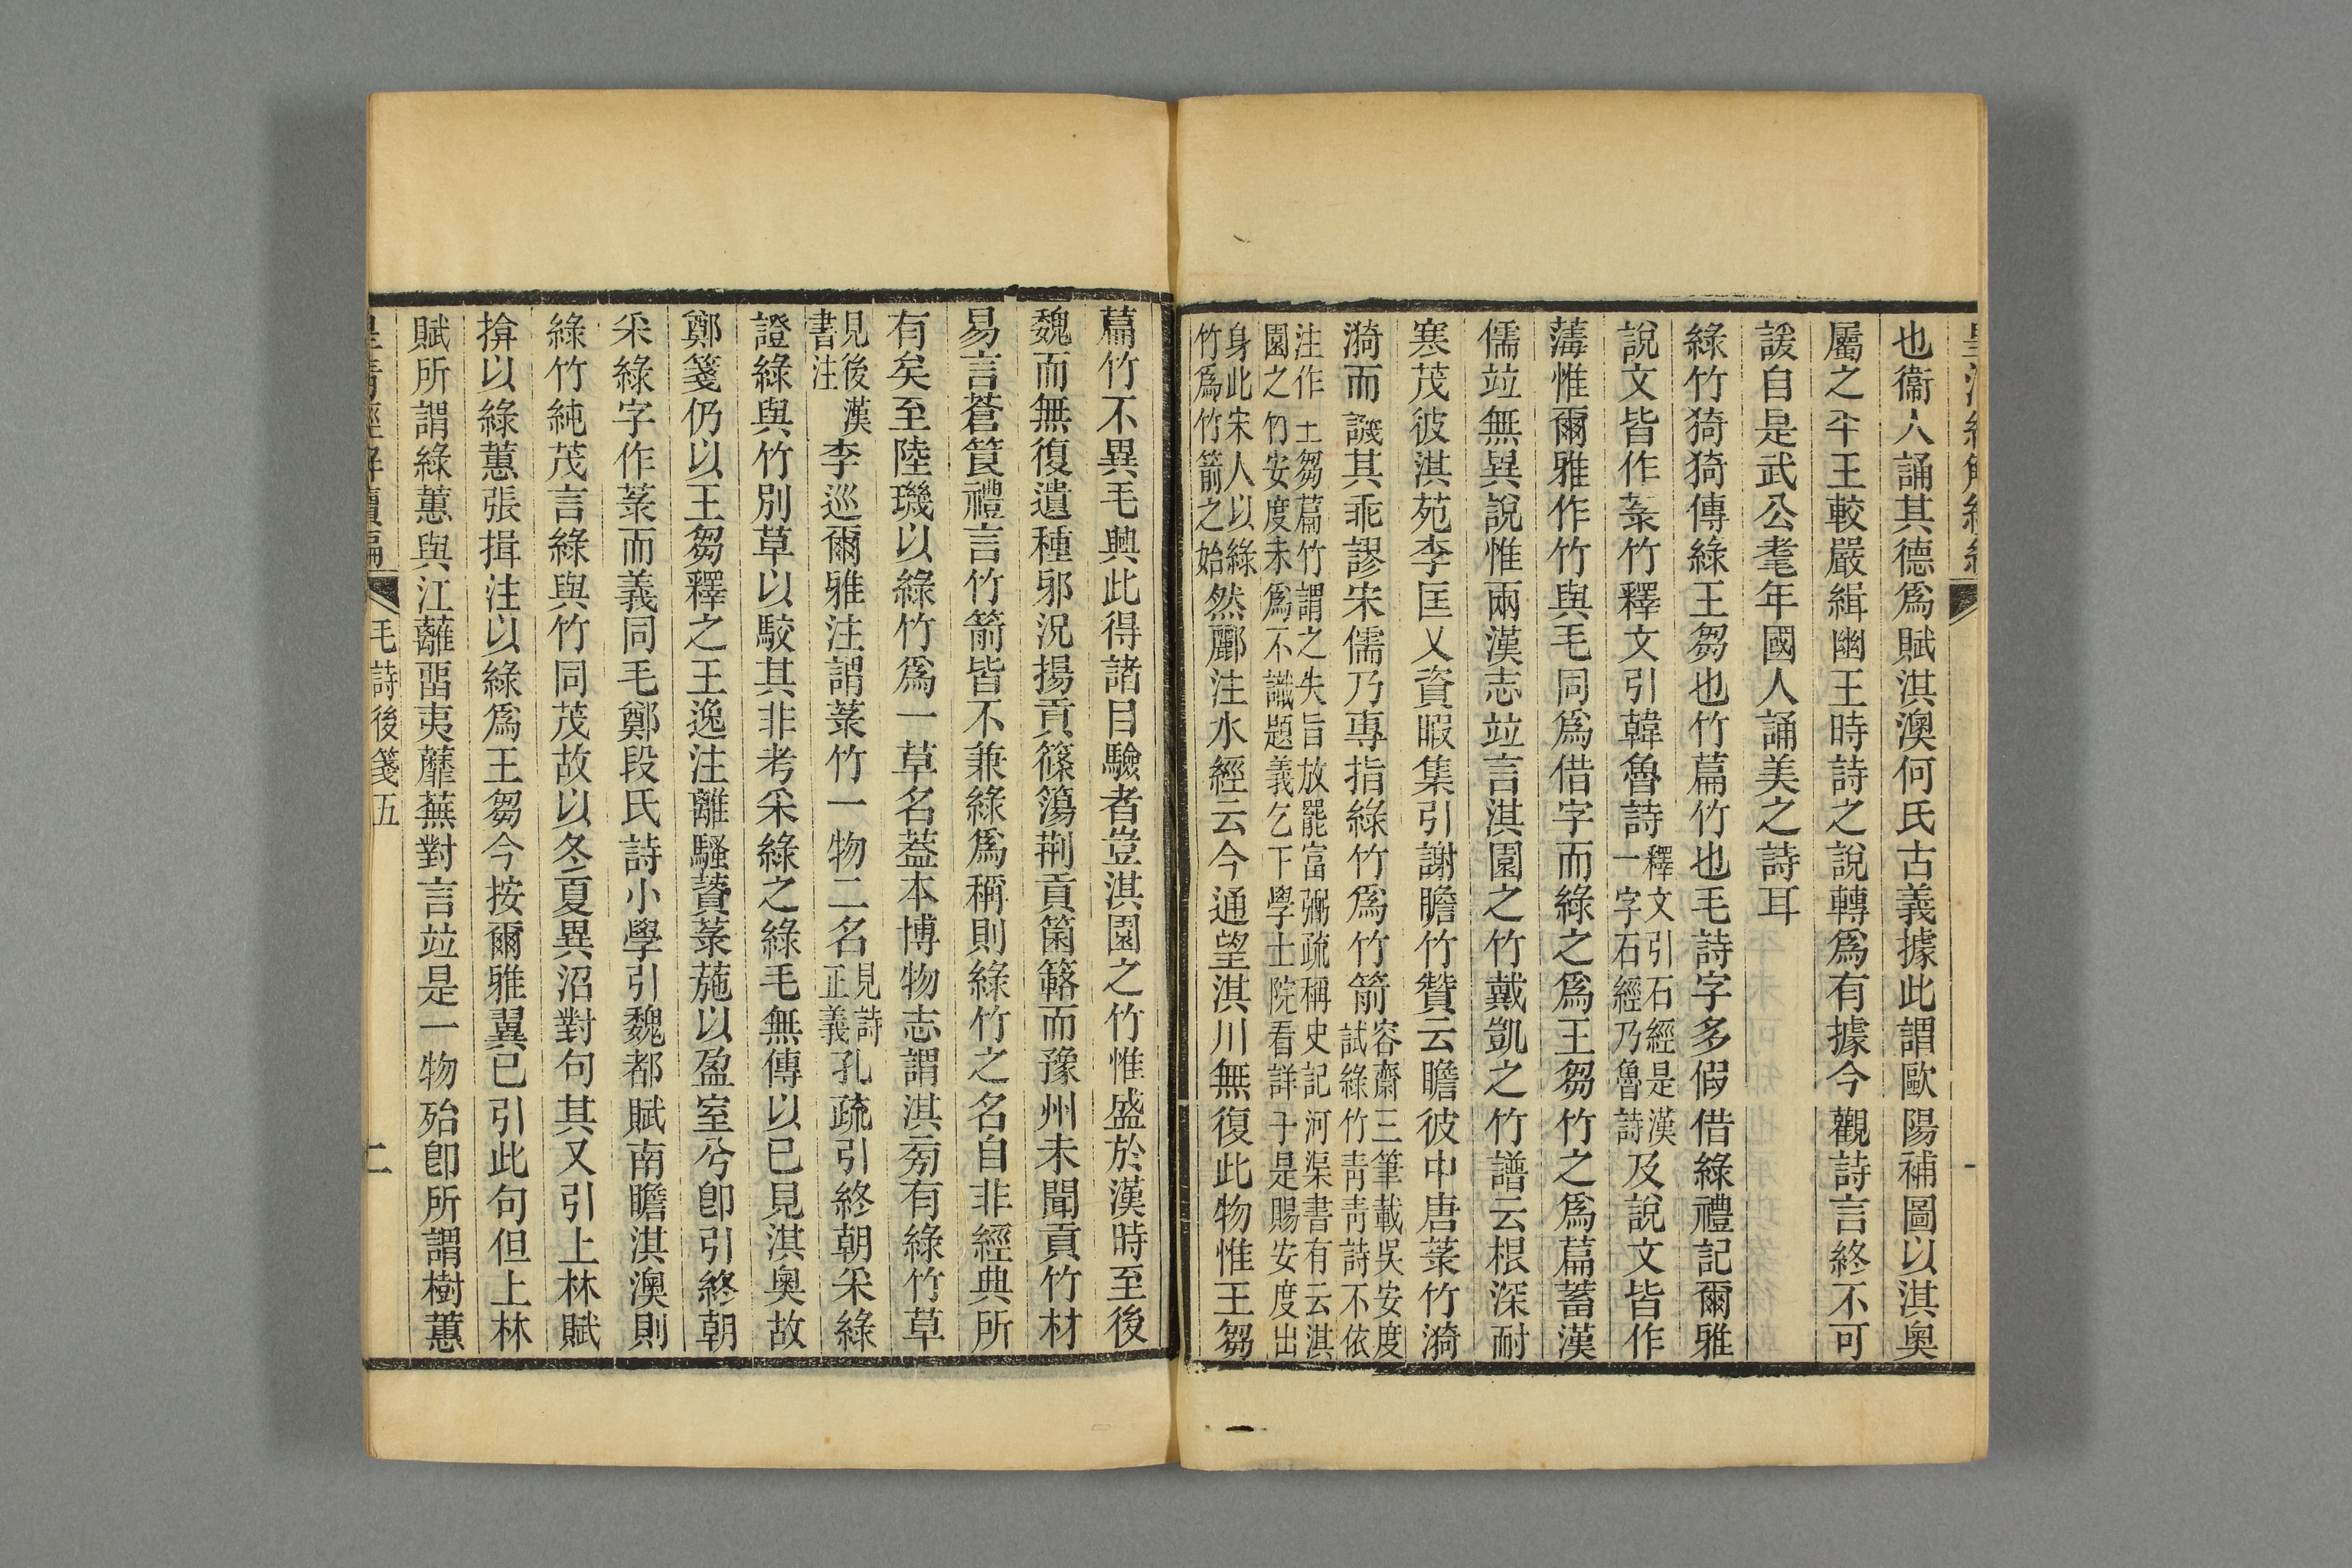 也衞人誦其德爲賦淇澳何氏古義據此謂歐陽補圖以淇奥
屬之平王較嚴緝幽王時詩之說轉爲有據今觀詩言終不可
諼自是武公耄年國人誦美之詩耳
綠竹猗猗傳綠王芻也竹萹竹也毛詩字多假借綠禮記爾雅
說文皆作菉竹釋文引韓魯詩釋文引石經是漢一字石經乃魯詩及說文皆作
薄惟爾雅作竹與毛同爲借字而綠之爲王芻竹之爲萹蓄漢
儒竝無異說惟兩漢志竝言淇園之竹戴凱之竹譜云根深耐
寒茂彼淇苑李匡乂資暇集引謝瞻竹贊云瞻彼中唐菉竹漪
漪而譏其乖謬宋儒乃專指綠竹爲竹箭容齋三筆載吳安度試綠竹青青詩不依
注作王芻萹竹謂之失旨放罷富弼疏稱史記河渠書有云淇園之竹安度未爲不識題義乞下學士院看詳于是賜安度出
身此宋人以綠竹爲竹箭之始然酈注水經云今通望淇川無復此物惟王芻
萹竹不異毛興此得諸目驗者豈淇園之竹惟盛於漢時至後
魏而無復遺種邪況揚貢篠簜荆貢箘簵而豫州未聞貢竹材
易言蒼筤禮言竹箭皆不兼綠爲稱則綠竹之名自非經典所
有矣至陸璣以綠竹爲一草名葢本博物志謂淇㫄有綠竹草
見後漢書注李巡爾雅注謂菉竹一物二名見詩正義孔疏引終朝采綠
證綠與竹別草以駮其非考采綠之綠毛無傳以已見淇奥故
鄭箋仍以王芻釋之王逸注離騷薋菉葹以盈室兮卽引終朝
采綠字作菉而義同毛鄭段氏詩小學引魏都賦南瞻淇澳則
綠竹純茂言綠與竹同茂故以冬夏異沼對句其又引上林賦
揜以綠蕙張揖注以綠爲王芻今按爾雅翼已引此句但上林
賦所謂綠蕙與江蘺畱夷蘼蕪對言竝是一物殆卽所謂樹蕙
皇清經解續編
毛詩後箋五
二